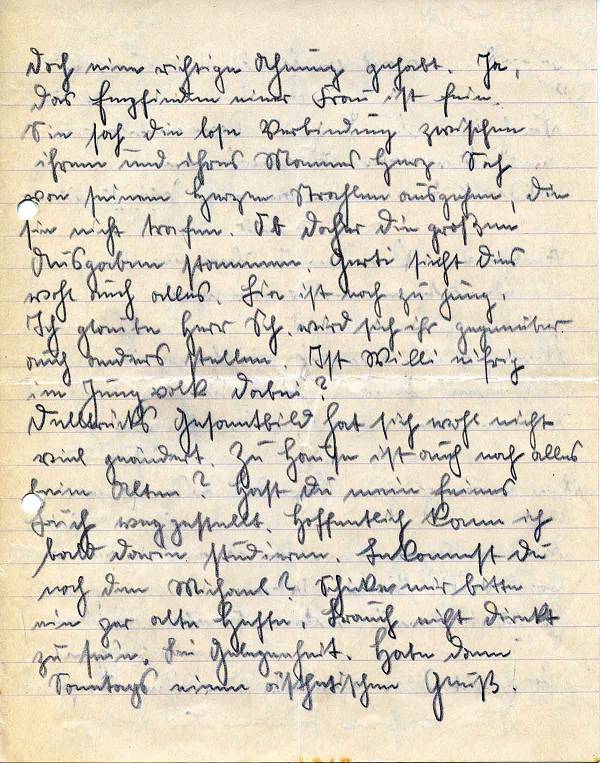 doch eine richtige Ahnung gehabt. Ja,
das Empfinden einer Frau ist fein.
Sie sah die lose Verbindung zwischen
ihrem und ihres Mannes Herz. Sah
von seinem Herzen Strahlen ausgehen, die
sie nicht trafen. Ob daher die großen
Ausgaben stammen. Gerti sieht dies
wohl auch alles. Sie ist noch zu jung.
Ich glaube Herr Sch. wird sich ihr gegenüber
auch anders stellen. Ist Willi eifrig
im Jungvolk dabei?
Gesamtbild hat sich wohl nicht
viel geändert. Zu Hause ist auch noch alles
beim Alten? Hast Du mein feines
Buch weggestellt. Hoffentlich kann ich
bald darin studieren. Bekommst Du
noch den Michael? Schicke mir bitte
ein par alte Hefte. Brauch nicht direkt
zu sein. Bei Gelegenheit. Habe dann
Sonntags einen ästhetischen Genuß.